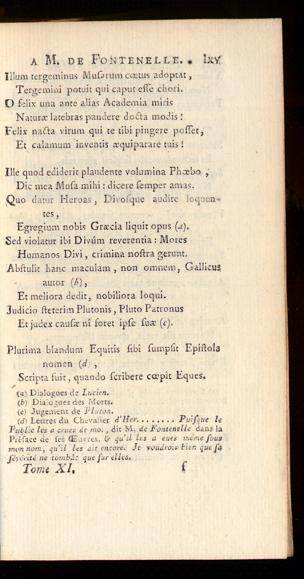 A M. DE FONTENELLE. lxv
Illum tergeminus Musarum cœtus adoptat,
Tergemini potuit qui caput esse chori.
O felix una ante alias Academia miris
Naturæ latebras pandere docta modis!
Felix nacta virum qui te tibi pingere posset,
Et calamum inventis æquiparare tuis!
Ille quod ediderit plaudente volumina Phœbo,
Dic mea Musa mihi: dicere semper amas.
Quo datur Heroas, Divosque audire loquen-
tes,
Egregium nobis Græcia liquit opus (a).
Sed violatur ibi Divûm reverentia: Mores
Humanos Divi, crimina nostra gerunt.
Abstulit hanc maculam, non omnem, Gallicus
autor (b),
Et meliora dedit, nobiliora loqui.
Judicio steterim Plutonis, Pluto Patronus
Et judex causæ nî foret ipse suæ (c).
Plurima blandum Equitis sibi sumpsit Epistola
nomen (d),
Scripta fuit, quando scribere cœpit Eques.
(a) Dialogues de Lucien.
(b) Dialogues des Morts.
(c) Jugement de Pluton.
(d) Lettres du Chevalier d'Her........ Puisque le
Public les a crues de moi, dit M. de Fontenelle dans la
Préface de ses Œuvres, & qu'il les a eues même sous
mon nom, qu'il les ait encore. Je voudrois bien que sa
sévérité ne tombât que sur elles.
Tome XI. f